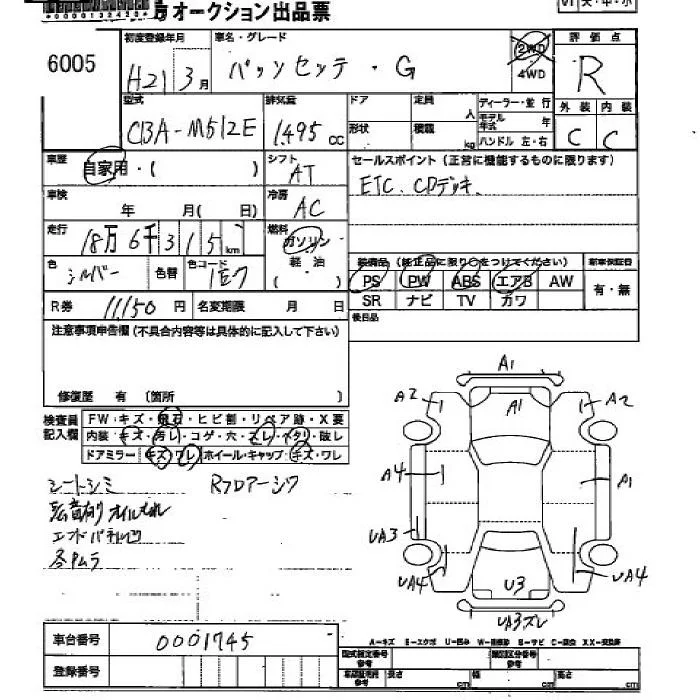 オークション出品票
6005
初度登録年月
H21 3月
車名・グレード
パッソセッテ・G
2WD
4WD
評価点
R
型式
CBA-M512E
排気量
1,495 cc
ドア
形状
定員
人
積載
kg
ディーラー・並行
モデル年式
年
ハンドル 左・右
外装 内装
C C
車歴
自家用・( )
シフト
AT
セールスポイント (正常に機能するものに限ります)
ETC. CDデッキ.
車検
年 月( 日)
冷房
AC
走行
18万6千315km
燃料
ガソリン
軽・油
色
シルバー
色替
色コード
1E7
装備品 (純正品に限り○をつけてください)
新車保証書
PS PW ABS エアB AW
有・無
SR ナビ TV カワ
R券 11,150円
名変期限 月 日
後日品
注意事項申告欄 (不具合内容等は具体的に記入して下さい)
修復歴 有 〔箇所 〕
検査員
記入欄
FW・キズ・飛石・ヒビ割・リペア跡・X要
内装・キズ・汚レ・コゲ・穴・スレ・ヘタリ・破レ
ドアミラー キズ・ワレ ホイール・キャップ・キズ・ワレ
シートシミ
Rフロアーシワ
オイルもれ
エンドパネル凹
各Pムラ
A1
A2
A1
A2
A4
A1
UA3
UA4
U3
UA4
UA3ズレ
車台番号
0001745
登録番号
A-キズ E-エクボ U-凹み W-補修跡 S-サビ C-腐食 XX-交換済
型式指定番号
参考
類別区分番号
参考
長さ cm
幅 cm
高さ cm